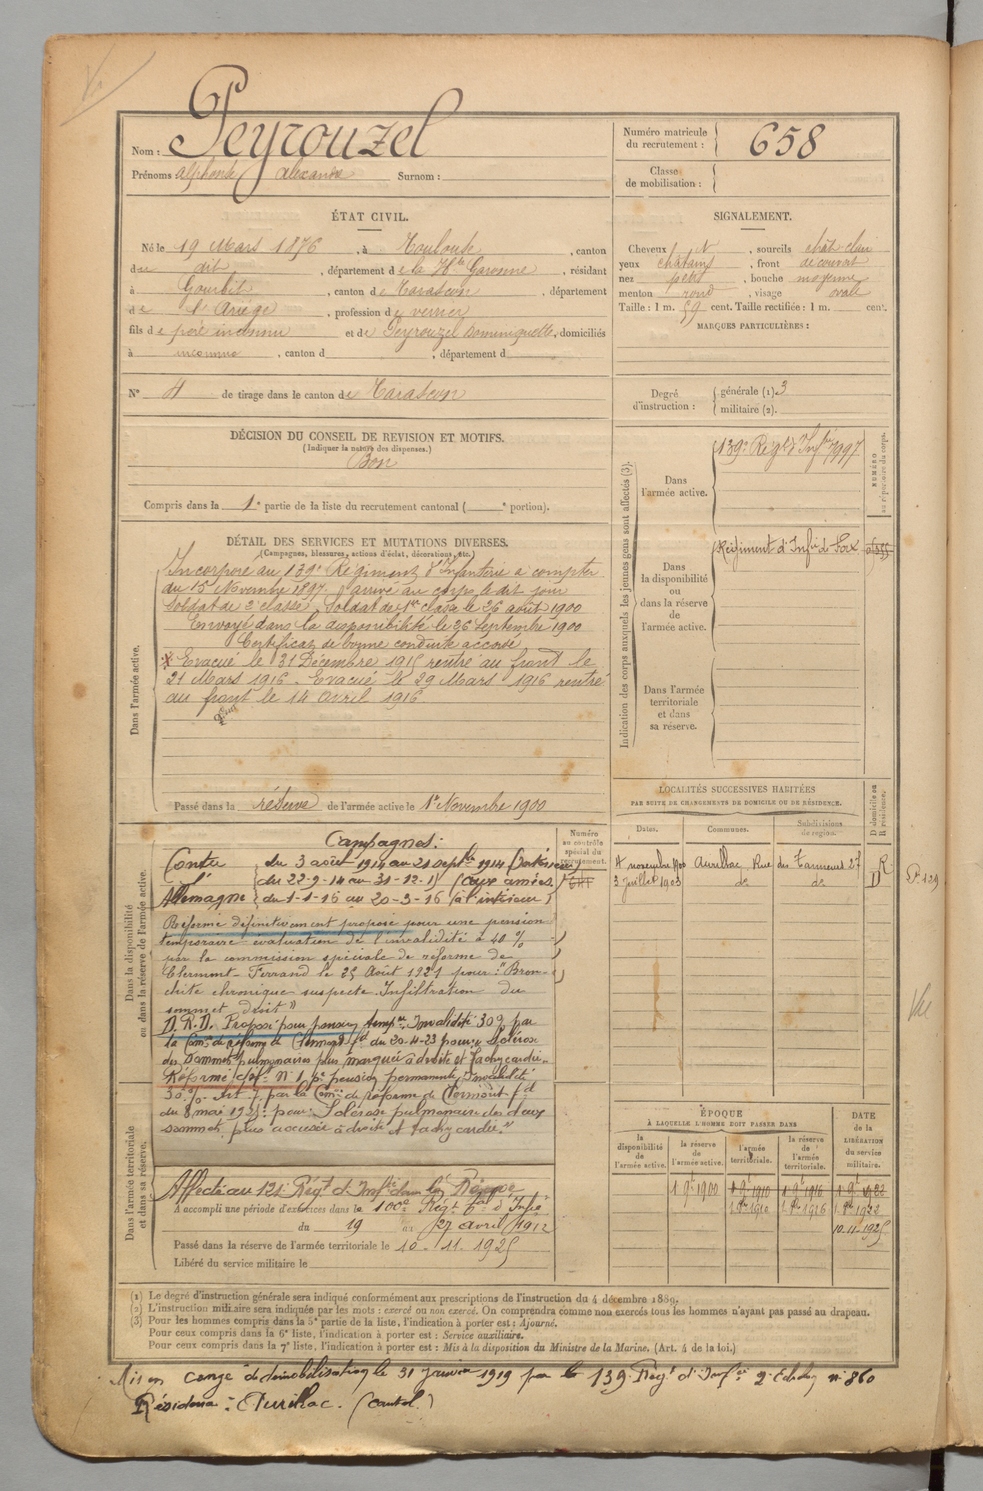 Nom : Peyrouzel
Prénoms : Alphonse Alexandre Surnom :
Numéro matricule du recrutement : 658
Classe de mobilisation :
ÉTAT CIVIL.
Né le 19 Mars 1876, à Toulouse, canton
du dit, département de la Hte Garonne, résidant
à Gourbit, canton de Tarascon, département
de l'Ariège, profession de verrier
fils de père inconnu et de Peyrouzel Dominiquette, domiciliés
à inconnu, canton d , département d
N° 4 de tirage dans le canton de Tarascon
SIGNALEMENT.
Cheveux N, sourcils chât clair
yeux chatains, front découvert
nez petit, bouche moyenne
menton rond, visage ovale
Taille : 1 m. 59 cent. Taille rectifiée : 1 m. cent.
MARQUES PARTICULIÈRES :
Degré d'instruction : générale (1). 3
militaire (2).
DÉCISION DU CONSEIL DE REVISION ET MOTIFS.
(Indiquer la nature des dispenses.)
Bon
Compris dans la 1e partie de la liste du recrutement cantonal ( e portion).
Indication des corps auxquels les jeunes gens sont affectés (3).
NUMÉRO au répertoire du corps.
Dans l'armée active.
139e Régt d'Infrie 7997
Dans la disponibilité ou dans la réserve de l'armée active.
Régiment d'Infie de Foix
Dans l'armée territoriale et dans sa réserve.
DÉTAIL DES SERVICES ET MUTATIONS DIVERSES.
(Campagnes, blessures, actions d'éclat, décorations, etc.)
Dans l'armée active.
Incorporé au 139e Régiment d'Infanterie à compter
du 15 Novembre 1897, arrivé au corps le dit jour
Soldat de 2e classe. Soldat de 1re classe le 26 août 1900
Envoyé dans la disponibilité le 26 septembre 1900
Certificat de bonne conduite accordé
Evacué le 31 Décembre 1915 rentré au front le
21 Mars 1916. Evacué le 29 Mars 1916 rentré
au front le 14 avril 1916
Passé dans la réserve de l'armée active le 1er Novembre 1900
LOCALITÉS SUCCESSIVES HABITÉES
PAR SUITE DE CHANGEMENTS DE DOMICILE OU DE RÉSIDENCE.
Dates. Communes. Subdivisions de région. D domicile ou R résidence.
4 novembre 1900 Aurillac, Rue des Tanneurs 27 R
3 Juillet 1903 do do D
P. 129
Dans la disponibilité ou dans la réserve de l'armée active.
Numéro au contrôle spécial du recrutement.
Campagnes :
Contre l' Allemagne
du 3 août 1914 au 21 septbre 1914
du 22-9-14 au 31-12-15 (aux armées)
du 1-1-16 au 20-3-16 (à l'intérieur)
Réformé définitivement proposé pour une pension
temporaire évaluation de l'invalidité à 40 %
par la commission spéciale de réforme de
Clermont-Ferrand le 25 Août 1921 pour : "Bron-
chite chronique suspecte. Infiltration du
sommet droit"
D. R. D. Proposé pour pension tempre Invalidité 30% par
la Comon de réforme de Clermont Fd du 20-4-23 pour : Sclérose
des sommets pulmonaires plus marquée à droite et tachycardie.
Réformé déft N° 1 pr pension permanente Invalidité
30 %. Art 7 par la Comon de réforme de Clermont-Fd
du 8 mai 1925 : pour : Sclérose pulmonaire des deux
sommets plus accusée à droite et tachycardie."
Dans l'armée territoriale et dans sa réserve.
Affecté au 121 Régt d'Infrie dans la Réserve
A accompli une période d'exercices dans le 100e Régt tal d'Infie
du 19 au 27 avril 1912
Passé dans la réserve de l'armée territoriale le 10-11-1925
Libéré du service militaire le
ÉPOQUE
À LAQUELLE L'HOMME DOIT PASSER DANS
DATE de la LIBÉRATION du service militaire.
la disponibilité de l'armée active. la réserve de l'armée active. l'armée territoriale. la réserve de l'armée territoriale.
1 9bre 1900 1 9bre 1910 1 9bre 1916 1 9bre 1922
10-11-1925
(1) Le degré d'instruction générale sera indiqué conformément aux prescriptions de l'instruction du 4 décembre 1889.
(2) L'instruction militaire sera indiquée par les mots : exercé ou non exercé. On comprendra comme non exercés tous les hommes n'ayant pas passé au drapeau.
(3) Pour les hommes compris dans la 5e partie de la liste, l'indication à porter est : Ajourné.
Pour ceux compris dans la 6e liste, l'indication à porter est : Service auxiliaire.
Pour ceux compris dans la 7e liste, l'indication à porter est : Mis à la disposition du Ministre de la Marine. (Art. 4 de la loi.)
Mis en congé de démobilisation le 31 Janvier 1919 par le 139 Régt d'Infie 2e Echelon n° 860
Résidence : Aurillac. (Cantal)